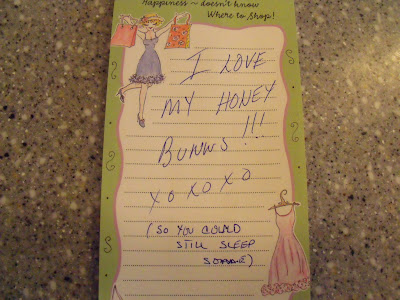 Happiness ~ doesn't know
Where to Shop!
I LOVE
MY HONEY
BUNNS!!!
XO XO XO
(SO YOU COULD
STILL SLEEP